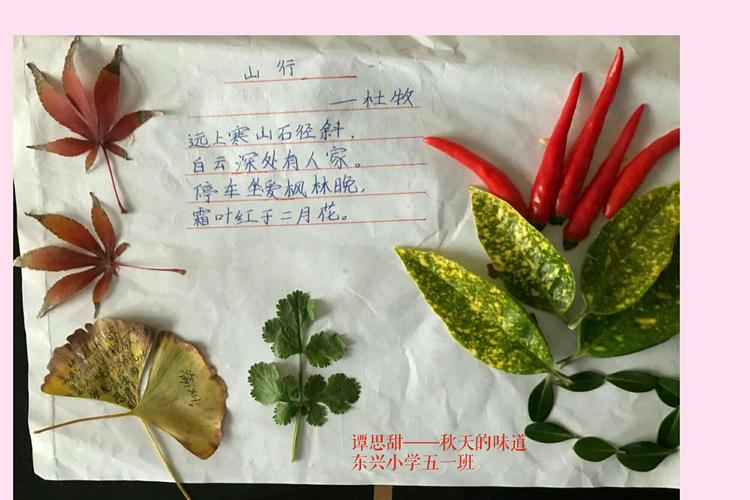 山行
——杜牧
远上寒山石径斜，
白云深处有人家。
停车坐爱枫林晚，
霜叶红于二月花。
谭思甜——秋天的味道
东兴小学五一班